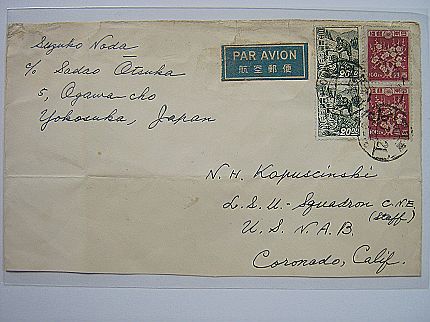 Suzuko Noda
c/o Sadao Otsuka
5, Ogawa cho
Yokosuka, Japan
PAR AVION
航空郵便
N. H. Kapuscinski
L.S.U - Squadron C.N.E.
(Staff)
U. S. N. A. B.
Coronado, Calif.